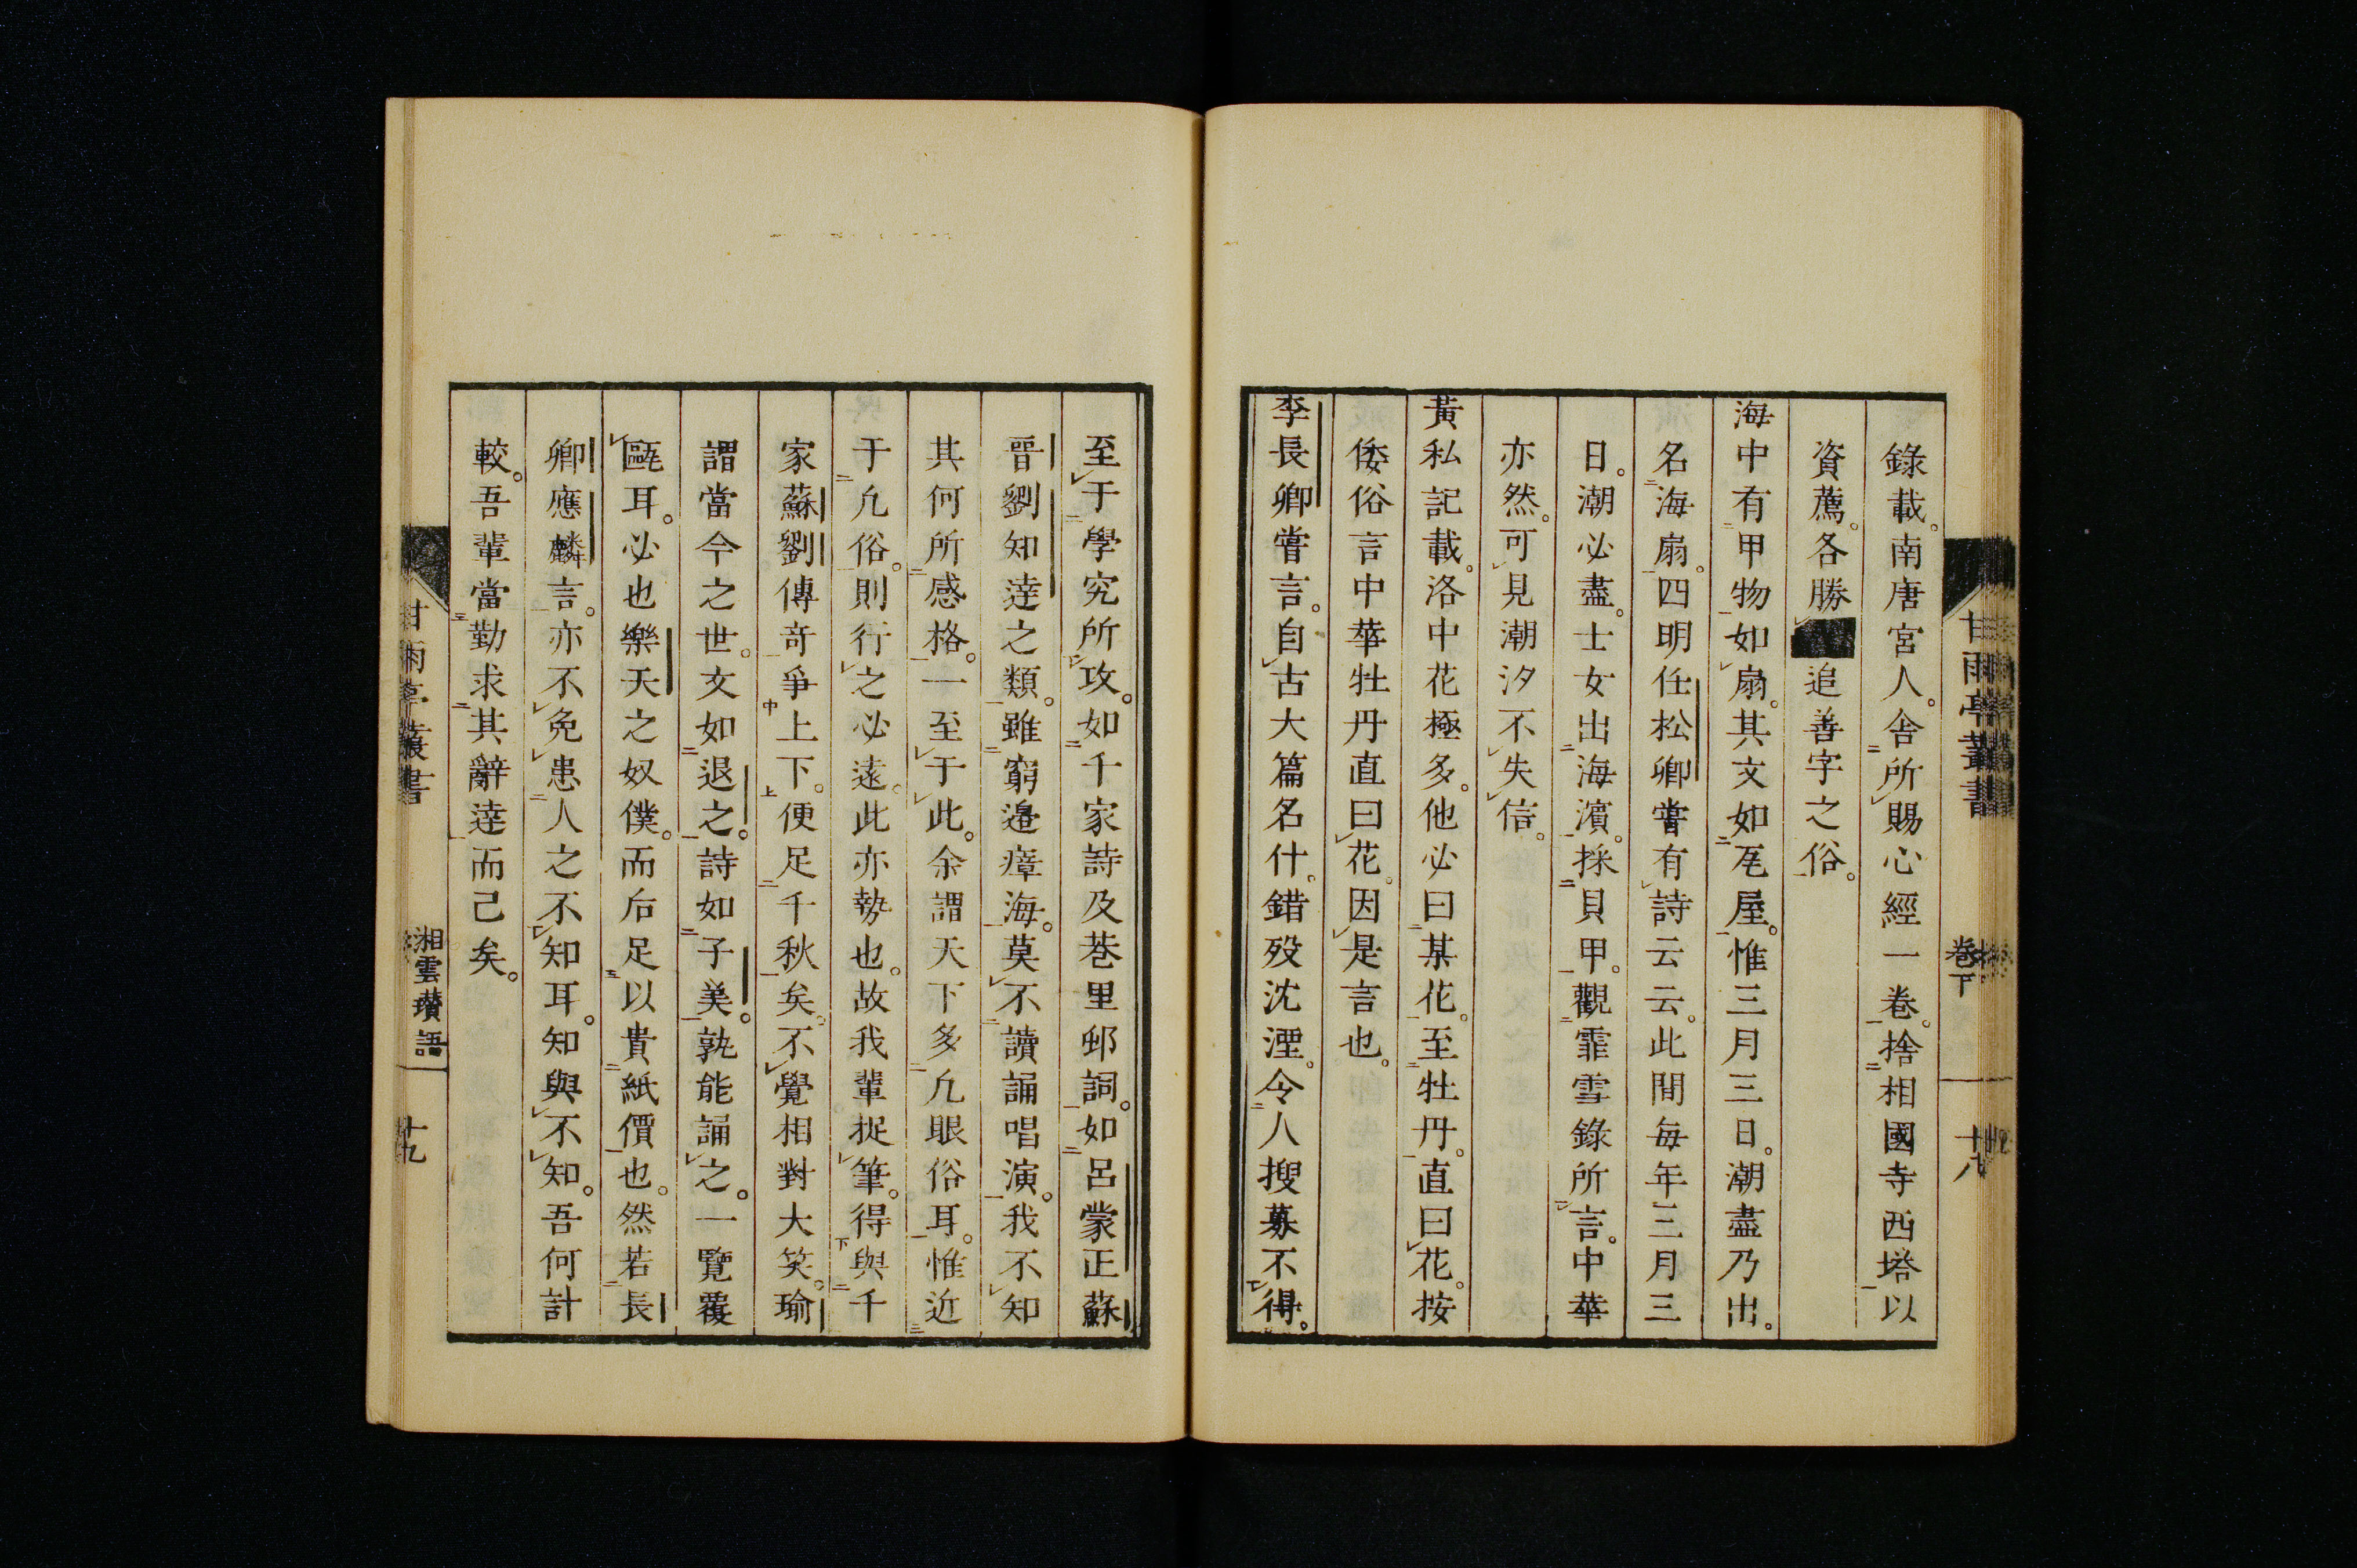 錄載。南唐宮人。舍所賜心經一卷。捨相國寺西塔以
資薦。各勝■追善字之俗。
海中有甲物如扇。其文如瓦屋。惟三月三日。潮盡乃出。
名海扇。四明任松卿嘗有詩云云。此間每年三月三
日。潮必盡。士女出海濱。採貝甲。觀霏雪錄所言。中華
亦然。可見潮汐不失信。
黃私記載。洛中花極多。他必曰某花。至牡丹。直曰花。按
倭俗言中華牡丹直曰花。因是言也。
李長卿嘗言。自古大篇名什。錯歿沈湮。令人搜募不得。
至于學究所攻。如千家詩及巷里邨詞。如呂蒙正蘇
晉劉知逹之類。雖窮邉瘴海。莫不讀誦唱演。我不知
其何所感格。一至于此。余謂天下多凢眼俗耳。惟近
于凢俗。則行之必遠。此亦勢也。故我輩捉筆。得與千
家蘇劉傳奇爭上下。便足千秋矣。不覺相對大笑。瑜
謂當今之世。文如退之。詩如子美。孰能誦之。一覽覆
甌耳。必也樂天之奴僕。而后足以貴紙價也。然若長
卿應麟言。亦不免患人之不知耳。知與不知。吾何計
較。吾輩當勤求其辭逹而己矣。
甘雨亭叢書
卷下
十八
甘雨亭叢書
湘雲瓚語
十九